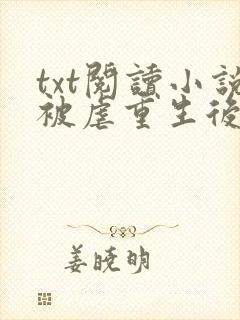 txt閱讀小說
被虐重生後
姜曉明